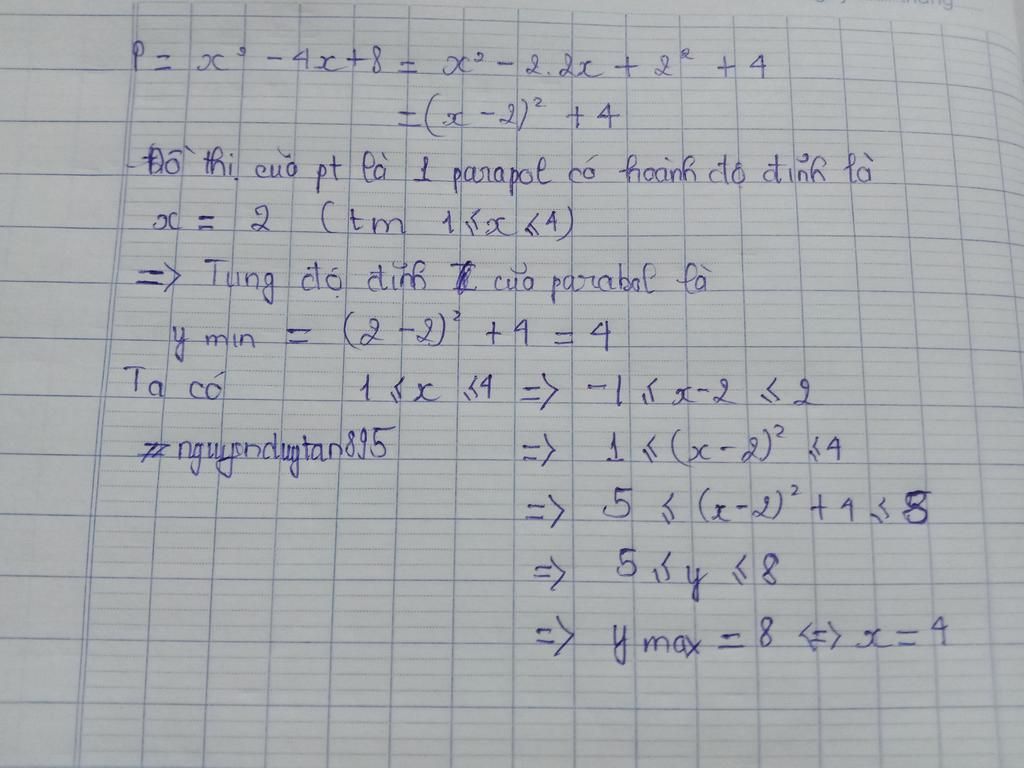 P = x² - 4x + 8 = x² - 2.2x + 2² + 4
= (x - 2)² + 4
- Đồ thị của pt là 1 parapol có hoành độ đỉnh là
x = 2 (tm 1 ≤ x ≤ 4)
=> Tung độ đỉnh của parabol là
y min = (2 - 2)² + 4 = 4
Ta có 1 ≤ x ≤ 4 => -1 ≤ x - 2 ≤ 2
# nguyenduytan895 => 1 ≤ (x - 2)² ≤ 4
=> 5 ≤ (x - 2)² + 4 ≤ 8
=> 5 ≤ y ≤ 8
=> y max = 8 <=> x = 4